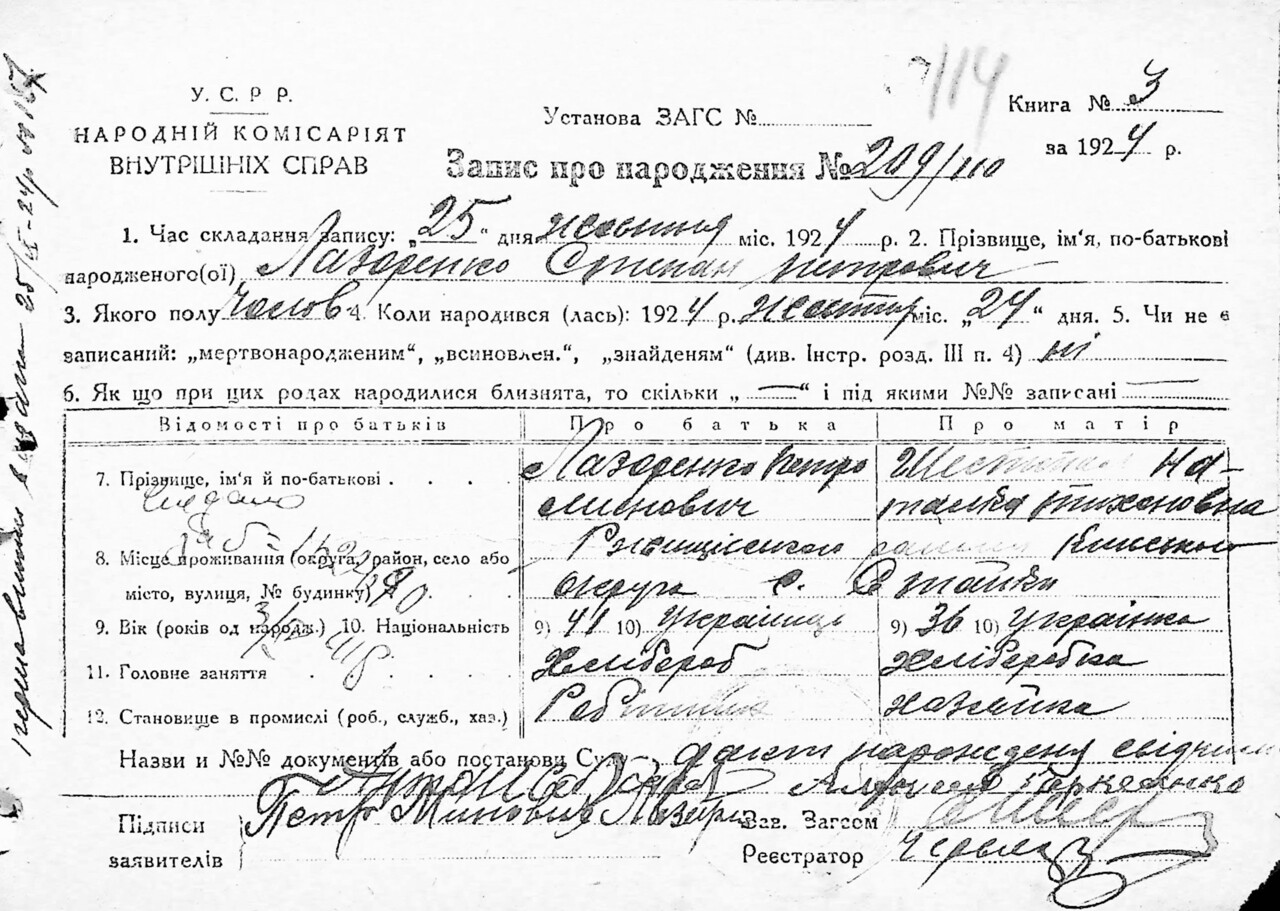 114
У. С. Р Р.
НАРОДНІЙ КОМІСАРІЯТ
ВНУТРІШНІХ СПРАВ
Установа ЗАГС №
Книга № 3
за 1924 р.
Запис про народження № 209/110
1. Час складання запису: „25“ дня жовтня міс. 1924 р. 2. Прізвище, ім'я, по-батькові
народженого(ої) Лазоренко Степан Петрович
3. Якого полу чолов 4. Коли народився (лась): 1924 р. жовтня міс. „24“ дня. 5. Чи не є
записаний: „мертвонародженим“, „всиновлен.“, „знайденям“ (див. Інстр. розд. III п. 4) ні
6. Як що при цих родах народилися близнята, то скільки „—“ і під якими №№ записані —
Відомості про батьків Про батька Про матір
7. Прізвище, ім'я й по-батькові . . . . Лазоренко Петро На-
минович талка Тихоновна
8. Місце проживання (округа, район, село або Ржищівского району Киівської
місто, вулиця, № будинку) . . . округа с. Стайки
9. Вік (років од народж.) 10. Національність 9) 41 10) Украінць 9) 36 10) Украінка
11. Головне заняття . . . . . Хлібероб хліборобка
12. Становище в промислі (роб., служб., хаз.) хазяйка
Назви и №№ документів або постанови Суду
Підписи
заявителів
Петро Минович Лазоре
Зав. Загсом
Реєстратор